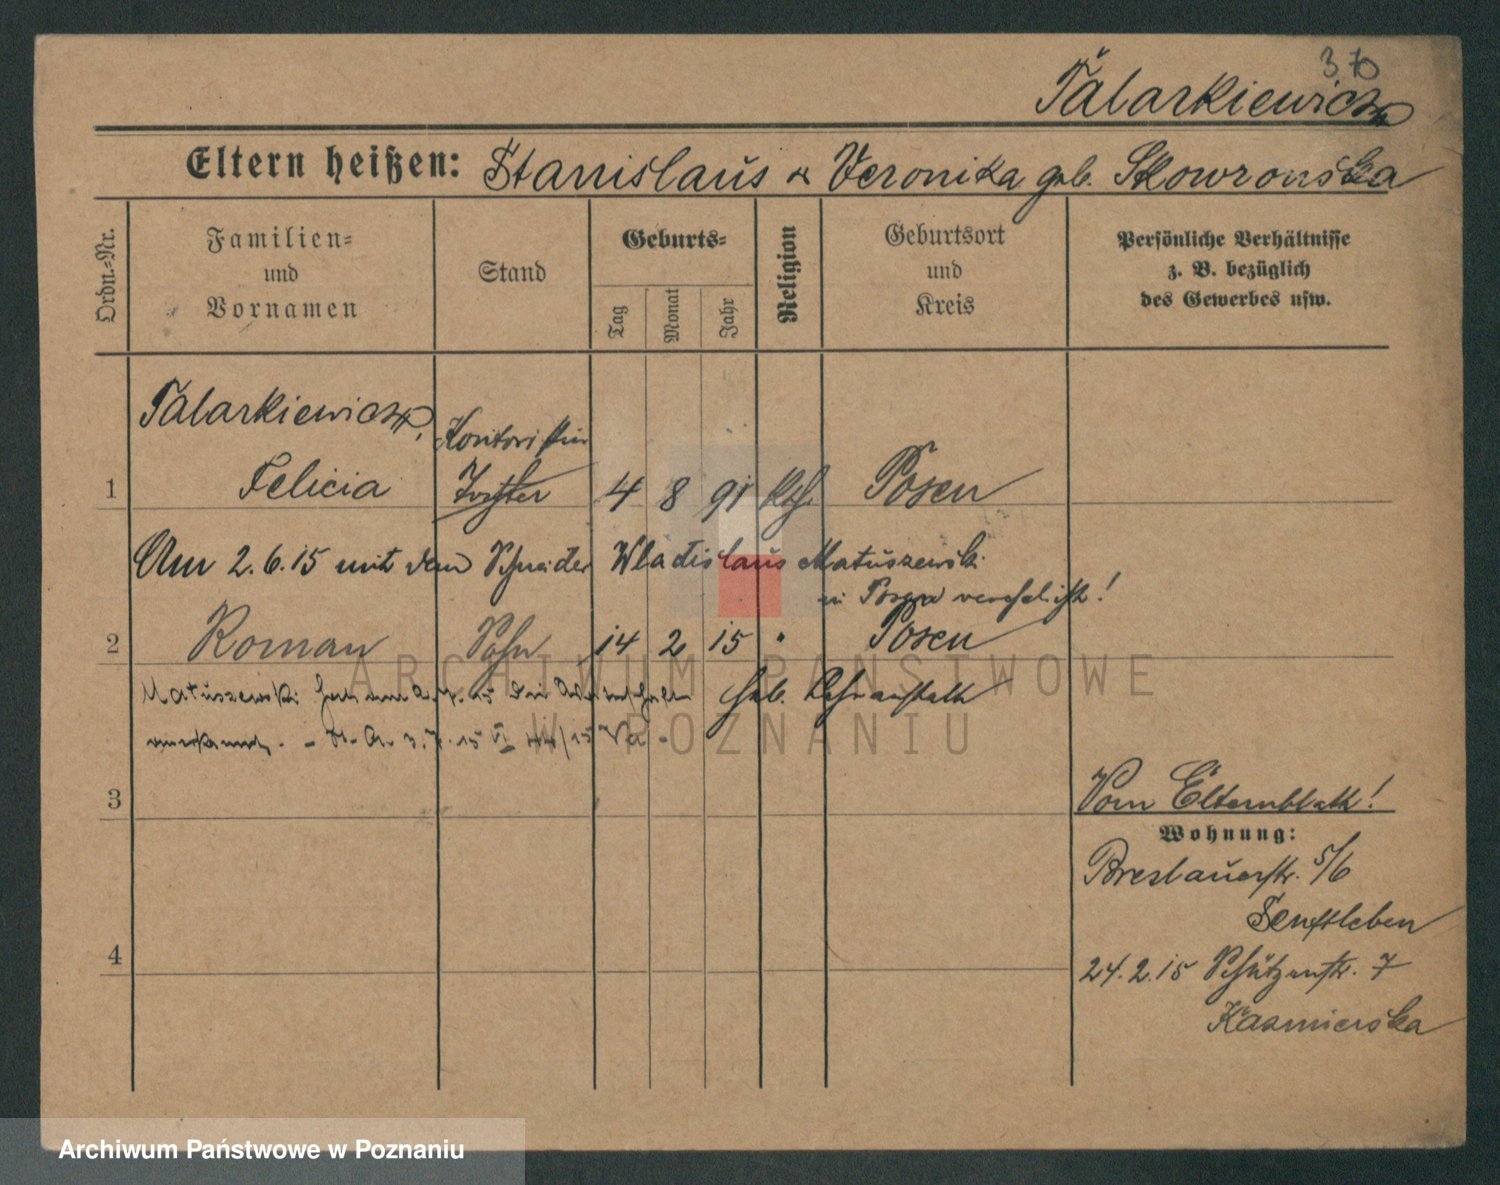 370
Talarkiewicz
Eltern heißen: Stanislaus & Veronika geb. Skowronska
Ordn.-Nr.
Familien-
und
Vornamen
Stand
Geburts-
Tag
Monat
Jahr
Religion
Geburtsort
und
Kreis
Persönliche Verhältnisse
z. B. bezüglich
des Gewerbes usw.
Talarkiewicz, Kontoristin
1 Felicia Tochter 4 8 91 kth. Posen
Am 2.6.15 mit dem Schneider Wladislaus Matuszewski
in Posen verehelicht!
2 Roman Sohn 14 2 15 " Posen
Matuszewski hat am 2.7.15 die Vaterschaft Heb. Lehranstalt
anerkannt. - St. A. 3.7.15 VI 44/15 Va -
3
Vom Elternblatt!
Wohnung:
Breslauerstr. 5/6
Senftleben
4
24.2.15 Schützenstr. 7
Kasmierska
ARCHIWUM PAŃSTWOWE
W POZNANIU
Archiwum Państwowe w Poznaniu